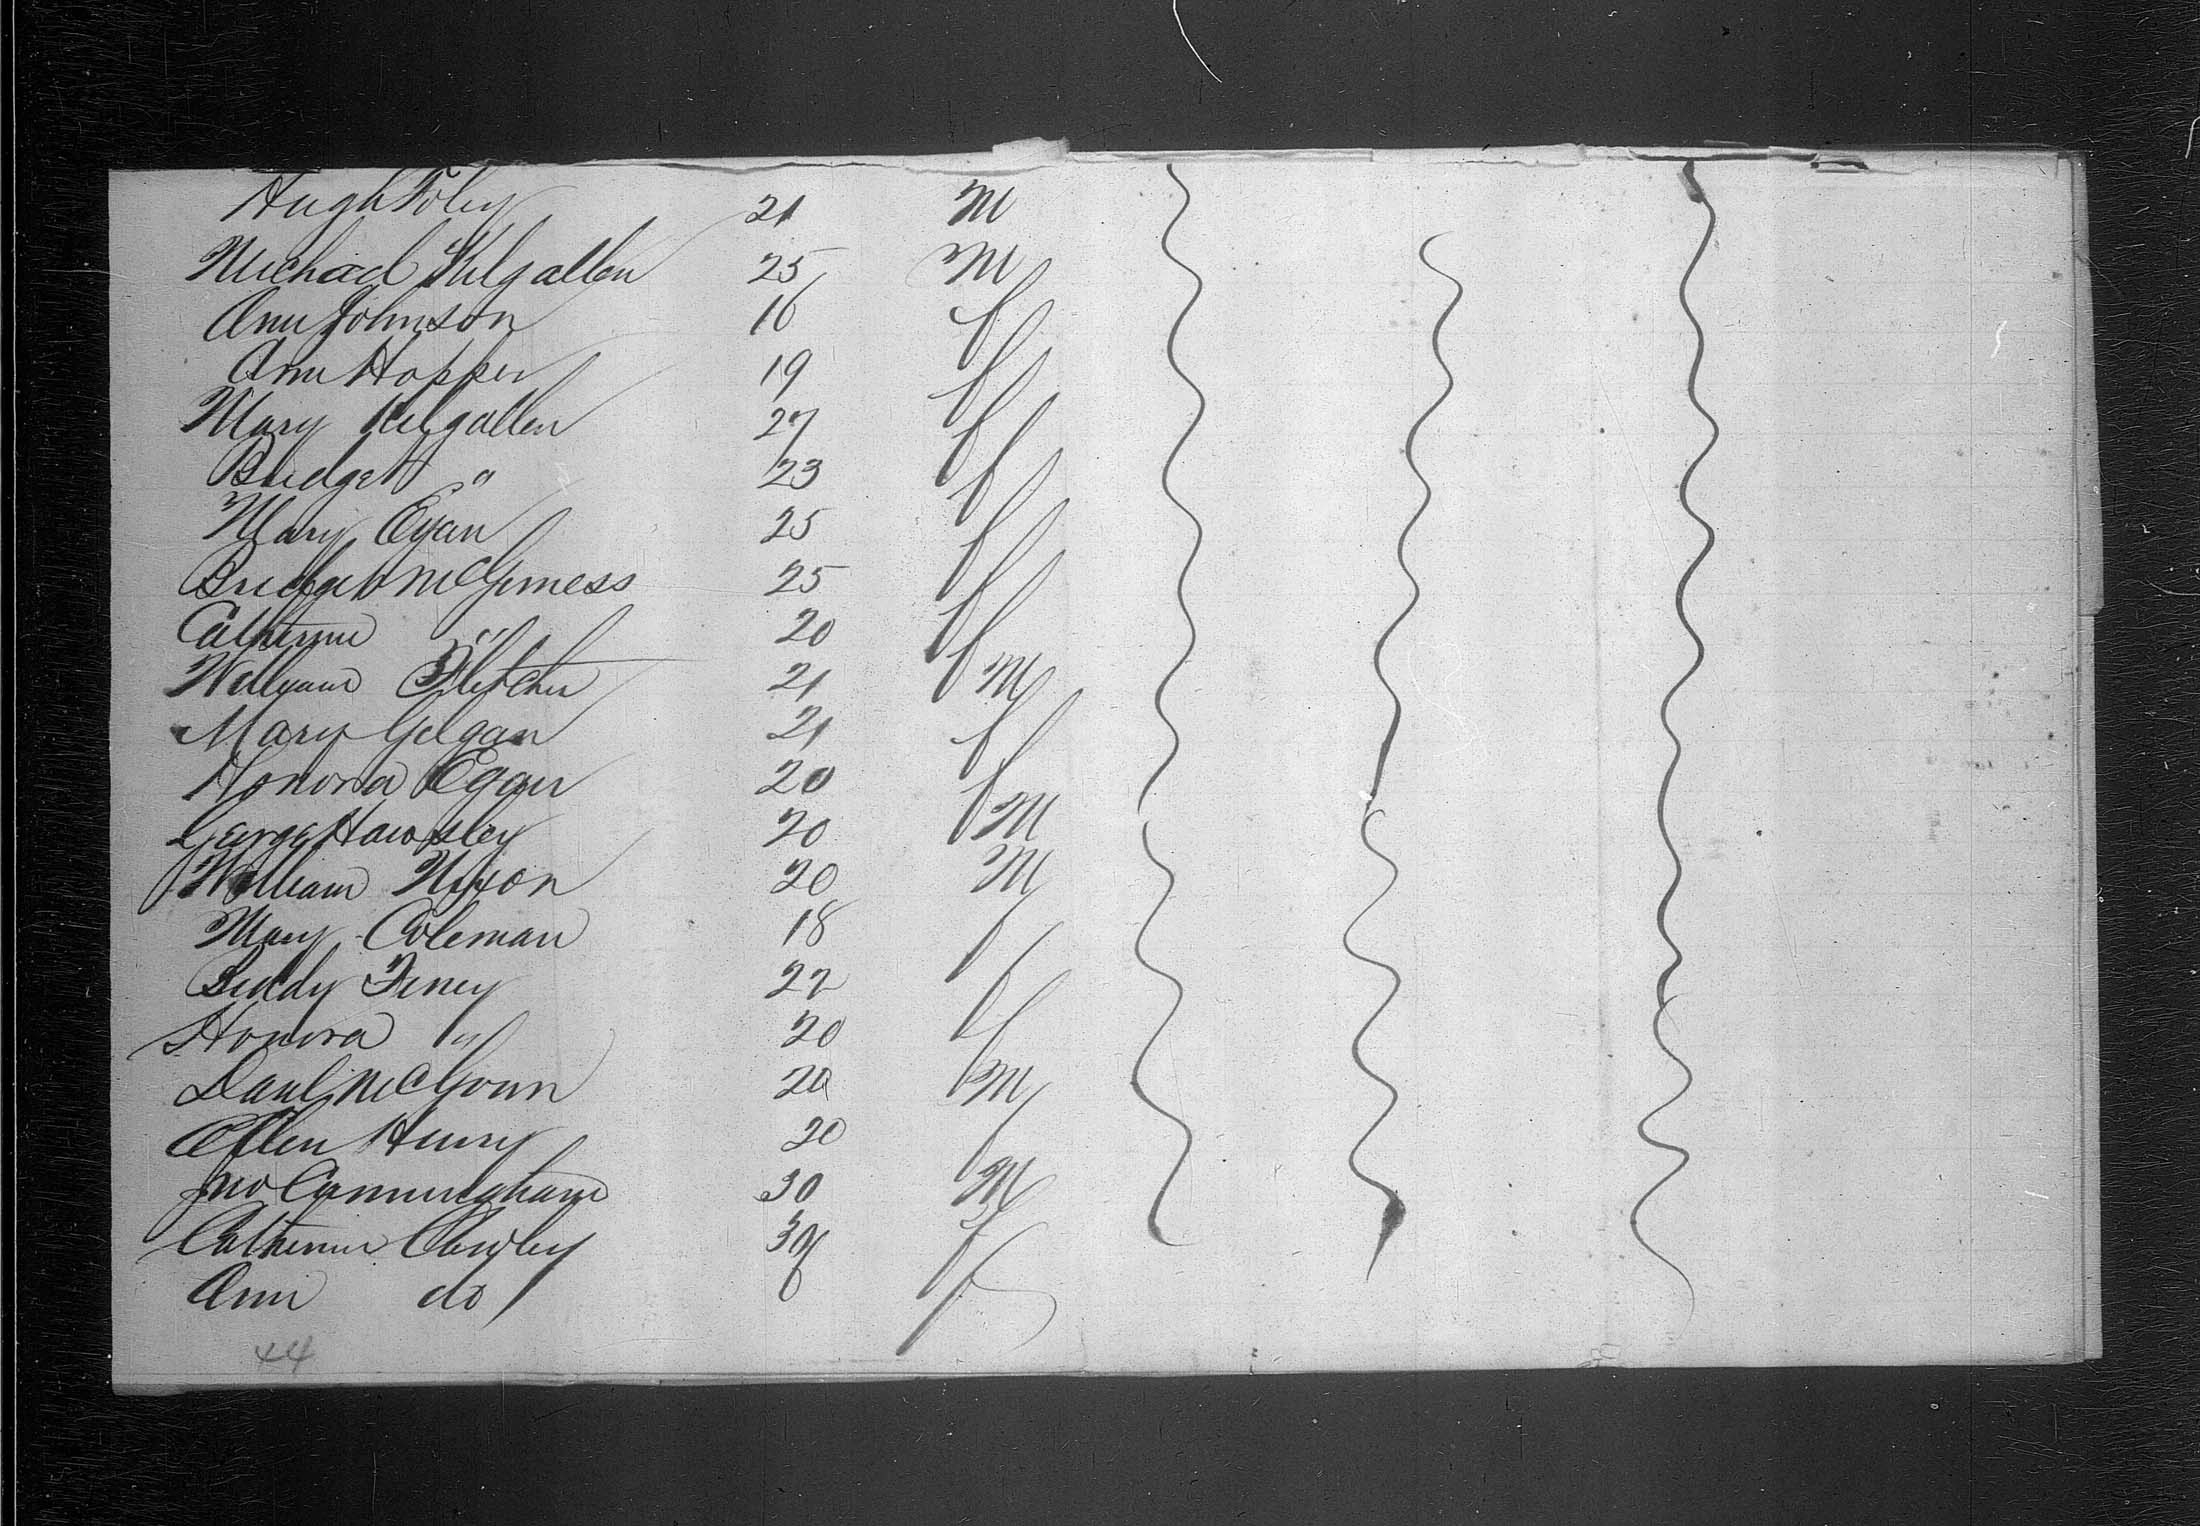 Hugh Foley 21 M
Michael Kilgallen 25 M
Ann Johnson 16 f
Ann Hopper 19 f
Mary Kilgallen 27 f
Bridget " 23 f
Mary Egan 25 f
Bridget McGinness 25 f
Catherine " 20 f
William Fletcher 21 M
Mary Gilgan 21 f
Honora Egan 20 f
George Hawsley 20 M
William Nixon 20 M
Mary Coleman 18 f
Biddy Finey 22 f
Honora " 20 f
Danl McGoun 20 M
Ellen Henry 20 f
Jno Cunningham 30 M
Catherine 30 f
Ann do f
44